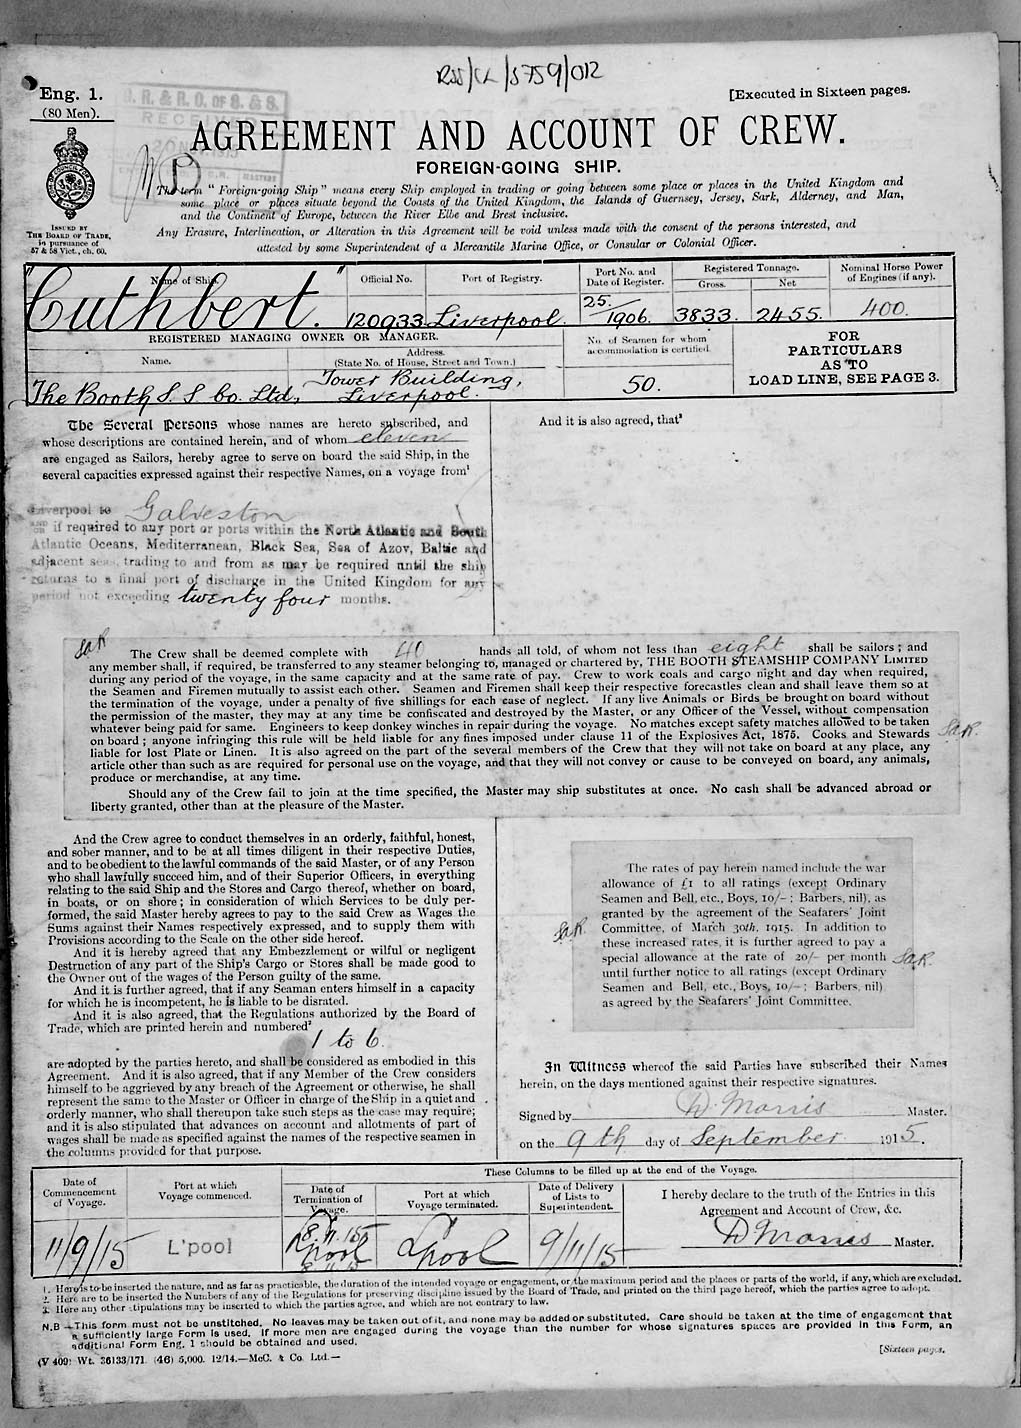 RSS/CL/5759/012
Eng. 1.
(80 Men).
[Executed in Sixteen pages.
RECEIVED
AGREEMENT AND ACCOUNT OF CREW.
FOREIGN-GOING SHIP.
The term "Foreign-going Ship" means every Ship employed in trading or going between some place or places in the United Kingdom and
some place or places situate beyond the Coasts of the United Kingdom, the Islands of Guernsey, Jersey, Sark, Alderney, and Man,
and the Continent of Europe, between the River Elbe and Brest inclusive.
Any Erasure, Interlineation, or Alteration in this Agreement will be void unless made with the consent of the persons interested, and
attested by some Superintendent of a Mercantile Marine Office, or Consular or Colonial Officer.
ISSUED BY
THE BOARD OF TRADE,
in pursuance of
57 & 58 Vict., ch. 60.
Name of Ship.
Official No.
Port of Registry.
Port No. and
Date of Register.
Registered Tonnage.
Gross.
Net
Nominal Horse Power
of Engines (if any).
"Cuthbert."
120933
Liverpool.
25/1906.
3833.
2455.
400.
REGISTERED MANAGING OWNER OR MANAGER.
Name.
Address.
(State No. of House, Street and Town.)
No. of Seamen for whom
accommodation is certified.
FOR
PARTICULARS
AS TO
LOAD LINE, SEE PAGE 3.
The Booth S.S Co. Ltd,
Tower Building,
Liverpool.
50.
The Several Persons whose names are hereto subscribed, and
whose descriptions are contained herein, and of whom eleven
are engaged as Sailors, hereby agree to serve on board the said Ship, in the
several capacities expressed against their respective Names, on a voyage from¹
And it is also agreed, that³
Liverpool to Galveston
and if required to any port or ports within the North Atlantic and South
Atlantic Oceans, Mediterranean, Black Sea, Sea of Azov, Baltic and
adjacent seas, trading to and from as may be required until the ship
returns to a final port of discharge in the United Kingdom for any
period not exceeding twenty four months.
SaR
The Crew shall be deemed complete with 40 hands all told, of whom not less than eight shall be sailors; and
any member shall, if required, be transferred to any steamer belonging to, managed or chartered by, THE BOOTH STEAMSHIP COMPANY LIMITED
during any period of the voyage, in the same capacity and at the same rate of pay. Crew to work coals and cargo night and day when required,
the Seamen and Firemen mutually to assist each other. Seamen and Firemen shall keep their respective forecastles clean and shall leave them so at
the termination of the voyage, under a penalty of five shillings for each case of neglect. If any live Animals or Birds be brought on board without
the permission of the master, they may at any time be confiscated and destroyed by the Master, or any Officer of the Vessel, without compensation
whatever being paid for same. Engineers to keep donkey winches in repair during the voyage. No matches except safety matches allowed to be taken
on board; anyone infringing this rule will be held liable for any fines imposed under clause 11 of the Explosives Act, 1875. Cooks and Stewards
liable for lost Plate or Linen. It is also agreed on the part of the several members of the Crew that they will not take on board at any place, any
article other than such as are required for personal use on the voyage, and that they will not convey or cause to be conveyed on board, any animals,
produce or merchandise, at any time.
SaR.
Should any of the Crew fail to join at the time specified, the Master may ship substitutes at once. No cash shall be advanced abroad or
liberty granted, other than at the pleasure of the Master.
And the Crew agree to conduct themselves in an orderly, faithful, honest,
and sober manner, and to be at all times diligent in their respective Duties,
and to be obedient to the lawful commands of the said Master, or of any Person
who shall lawfully succeed him, and of their Superior Officers, in everything
relating to the said Ship and the Stores and Cargo thereof, whether on board,
in boats, or on shore; in consideration of which Services to be duly per-
formed, the said Master hereby agrees to pay to the said Crew as Wages the
Sums against their Names respectively expressed, and to supply them with
Provisions according to the Scale on the other side hereof.
And it is hereby agreed that any Embezzlement or wilful or negligent
Destruction of any part of the Ship's Cargo or Stores shall be made good to
the Owner out of the wages of the Person guilty of the same.
And it is further agreed, that if any Seaman enters himself in a capacity
for which he is incompetent, he is liable to be disrated.
And it is also agreed, that the Regulations authorized by the Board of
Trade, which are printed herein and numbered²
1 to 6.
are adopted by the parties hereto, and shall be considered as embodied in this
Agreement. And it is also agreed, that if any Member of the Crew considers
himself to be aggrieved by any breach of the Agreement or otherwise, he shall
represent the same to the Master or Officer in charge of the Ship in a quiet and
orderly manner, who shall thereupon take such steps as the case may require;
and it is also stipulated that advances on account and allotments of part of
wages shall be made as specified against the names of the respective seamen in
the columns provided for that purpose.
The rates of pay herein named include the war
allowance of £1 to all ratings (except Ordinary
Seamen and Bell, etc., Boys, 10/-; Barbers, nil), as
granted by the agreement of the Seafarers' Joint
Committee, of March 30th, 1915. In addition to
these increased rates, it is further agreed to pay a
special allowance at the rate of 20/- per month
until further notice to all ratings (except Ordinary
Seamen and Bell, etc., Boys, 10/-; Barbers, nil)
as agreed by the Seafarers' Joint Committee.
SaR.
SaR.
In Witness whereof the said Parties have subscribed their Names
herein, on the days mentioned against their respective signatures.
Signed by D. Morris Master.
on the 9th day of September 1915.
These Columns to be filled up at the end of the Voyage.
Date of
Commencement
of Voyage.
Port at which
Voyage commenced.
Date of
Termination of
Voyage.
Port at which
Voyage terminated.
Date of Delivery
of Lists to
Superintendent.
I hereby declare to the truth of the Entries in this
Agreement and Account of Crew, &c.
D Morris Master.
11/9/15
L'pool
8.11.15
L'pool
L'pool
9/11/15
1. Here is to be inserted the nature, and as far as practicable, the duration of the intended voyage or engagement, or the maximum period and the places or parts of the world, if any, which are excluded.
2. Here are to be inserted the Numbers of any of the Regulations for preserving discipline issued by the Board of Trade, and printed on the third page hereof, which the parties agree to adopt.
3. Here any other stipulations may be inserted to which the parties agree, and which are not contrary to law.
N.B.—This form must not be unstitched. No leaves may be taken out of it, and none may be added or substituted. Care should be taken at the time of engagement that
a sufficiently large Form is used. If more men are engaged during the voyage than the number for whose signatures spaces are provided in this Form, an
additional Form Eng. 1 should be obtained and used.
(V 409) Wt. 36133/171. (46) 5,000. 12/14.—McC. & Co. Ltd.—
[Sixteen pages.